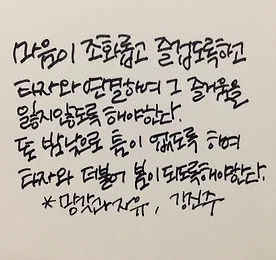 마음이 조화롭고 즐겁도록하고
타자와 연결하여 그 즐거움을
잃지않도록 해야한다.
또 밤낮으로 틈이 없도록 하여
타자와 더불어 봄이 되도록해야한다.
*망각과자유, 강신주